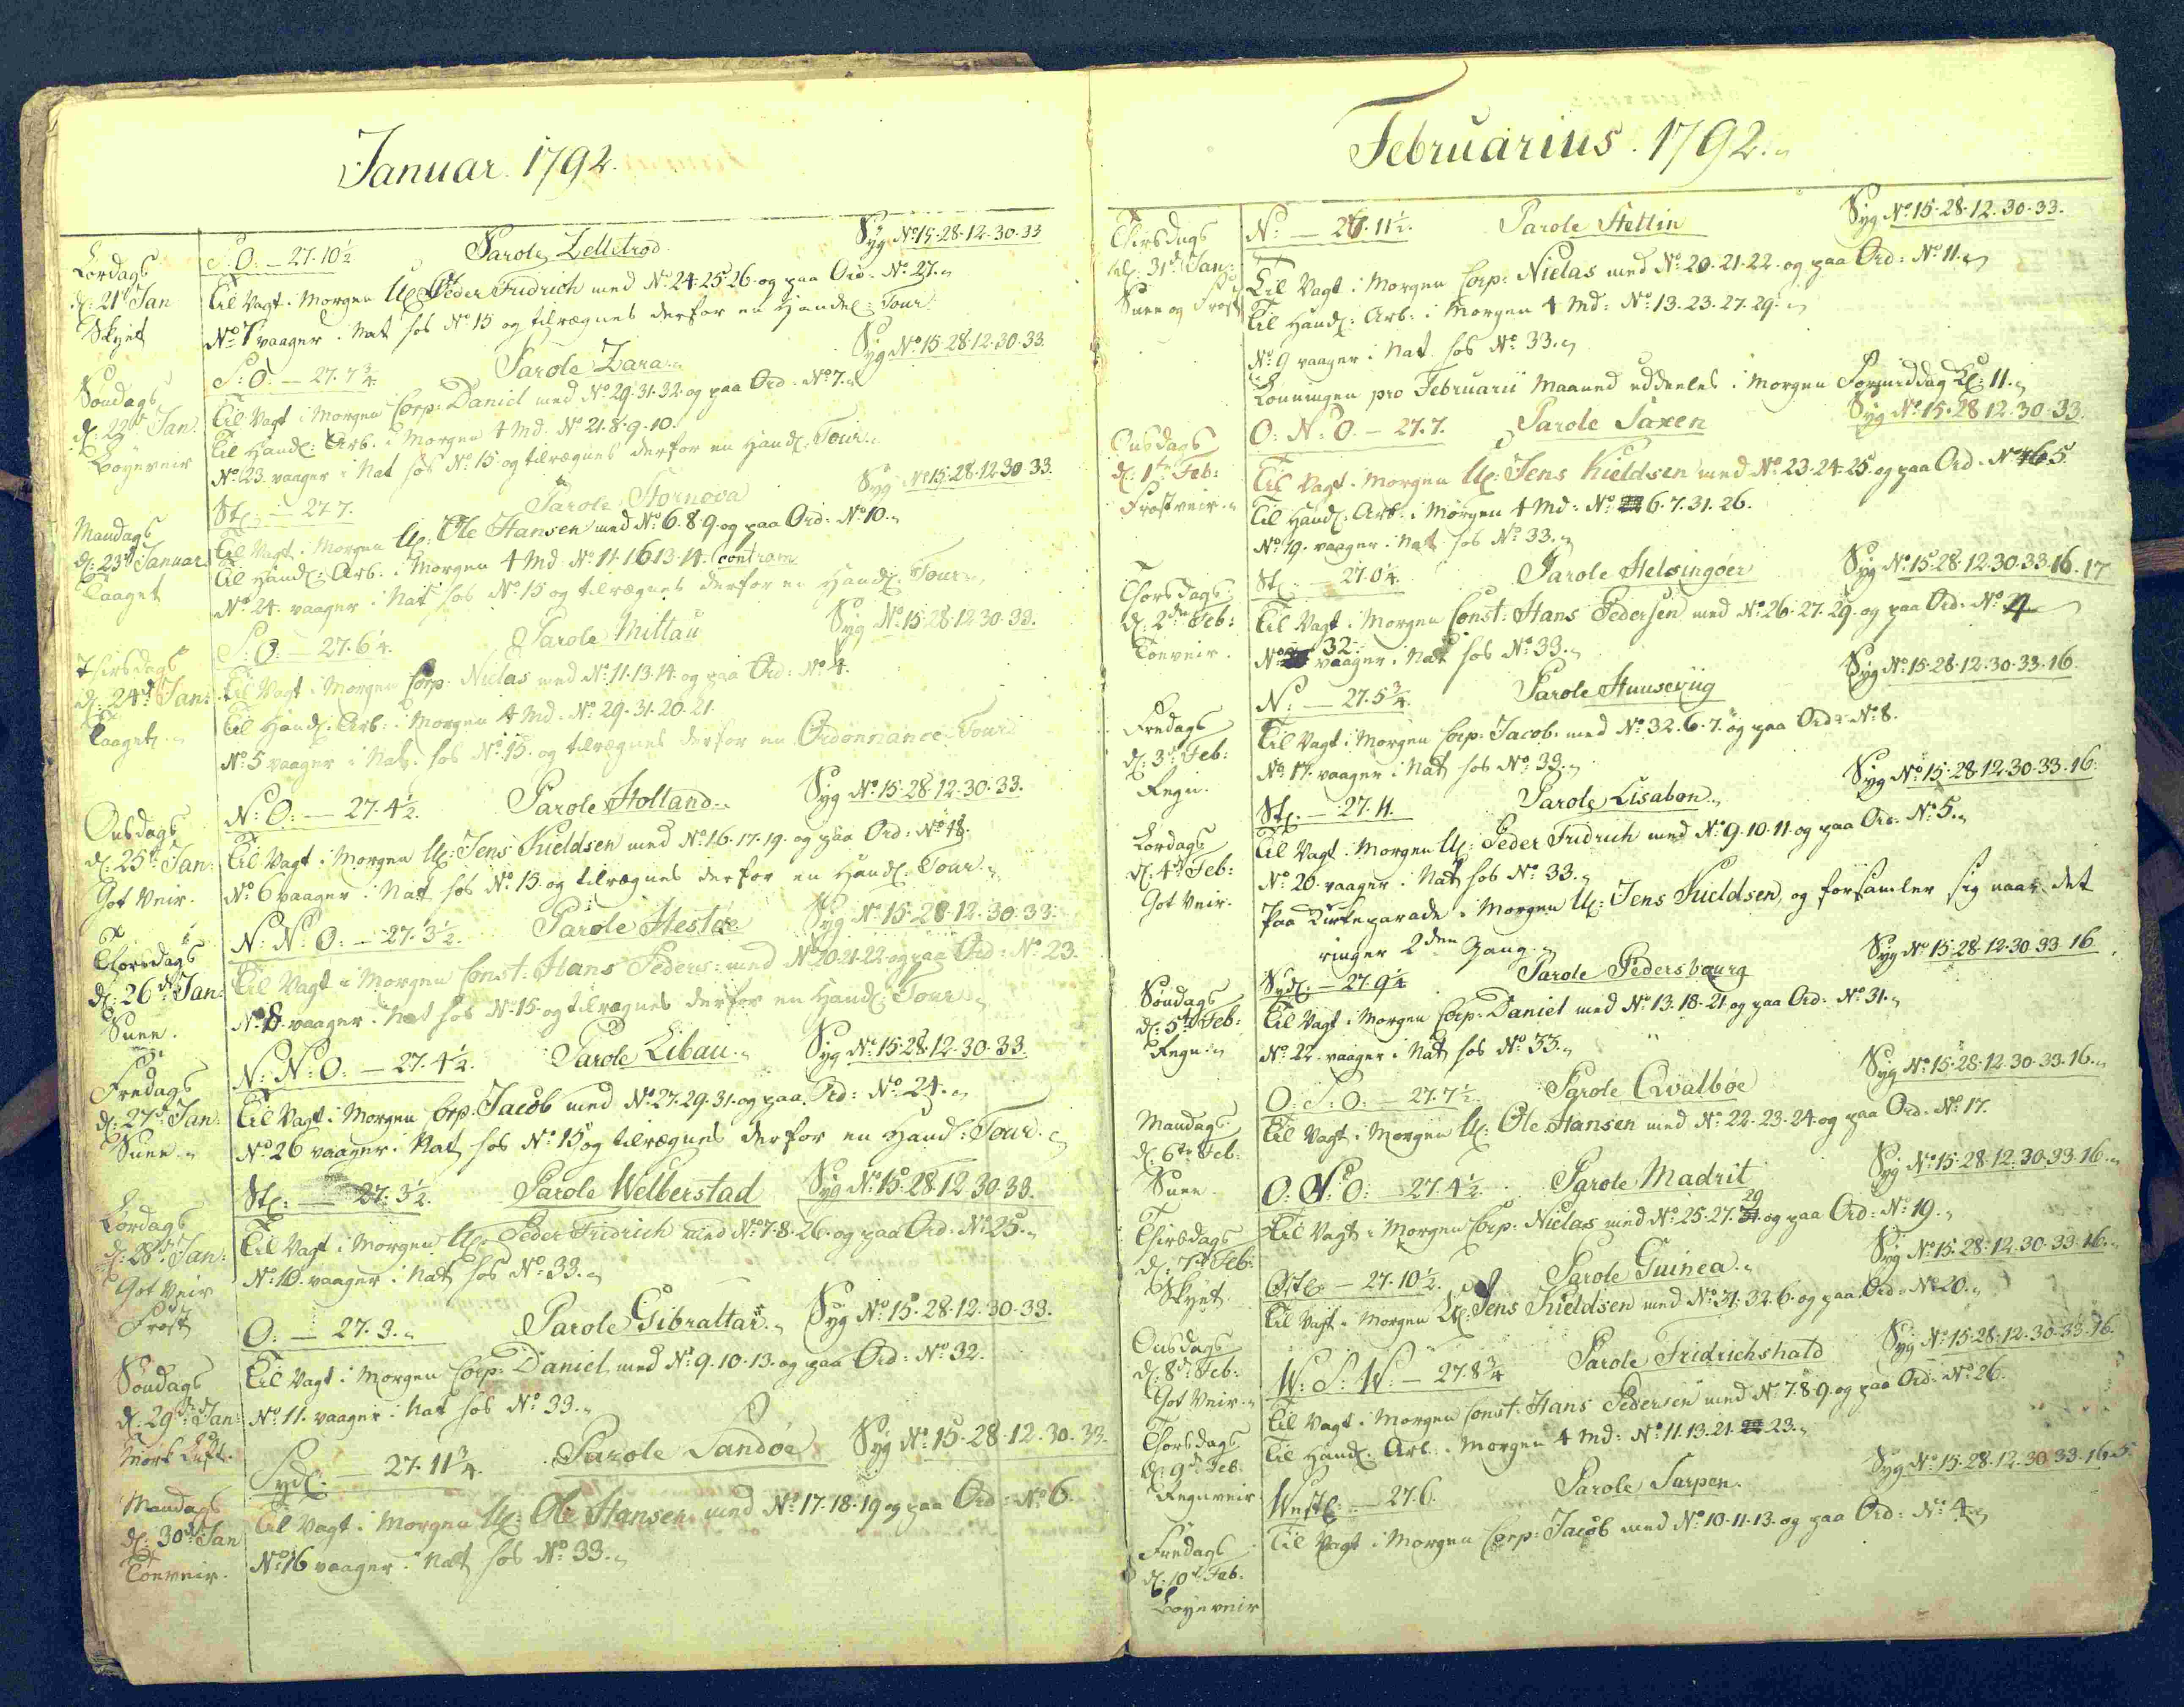 Januar. 1792.
Lørdags
d: 21de Jan
Skyet
S: O: — 27. 10 1/2
Parole Zelletrod
Syg No 15. 28. 12. 30. 33
Til Vagt i Morgen Uc Peder Fridrich med No 24. 25. 26. og paa Ord: No 27.
No 7 vaager i Nat hos No 15 og tilregnes derfor en Handl: Tour
Søndags
d: 22de Jan.
Bøyeveir
S: O: — 27. 7 3/4
Parole Zara
Syg No 15. 28. 12. 30. 33.
Til Vagt i Morgen Corp: Daniel med No 29. 31. 32. og paa Ord: No 7.
Til Handl: Arb: i Morgen 4 Md: No 21. 8. 9. 10.
No 23. vaager i Nat hos No 15 og tilregnes derfor en Handl: Tour
Mandags
d: 23de Januar
Taaget
St: — 27. 7.
Parole Stornova
Syg No 15. 28. 12. 30. 33.
Til Vagt i Morgen Uc: Ole Hansen med No 6. 8. 9. og paa Ord: No 10.
Til Handl: Arb: i Morgen 4 Md: No 11. 16. 13. 14. contram
No 24. vaager i Nat hos No 15 og tilregnes derfor en Handl: Tour
Thirsdags
d: 24de Jan:
Taaget
S: O: — 27. 6 1/4.
Parole Mittau
Syg No 15. 28. 12. 30. 33.
Til Vagt i Morgen Corp: Niclas med No 11. 13. 14. og paa Ord: No 4.
Til Handl: Arb: i Morgen 4 Md: No 29. 31. 20. 21.
No 5 vaager i Nat hos No 15. og tilregnes derfor en Ordonnance Tour
Onsdags
d: 25de Jan:
Got Veir.
N: O: — 27. 4 1/2.
Parole Holland
Syg No 15. 28. 12. 30. 33.
Til Vagt i Morgen Uc: Jens Kieldsen med No 16. 17. 19. og paa Ord: No 18.
No 6 vaager i Nat hos No 15. og tilregnes derfor en Handl: Tour
Thorsdags
d: 26de Jan:
Snee.
N: N: O: — 27. 3 1/2.
Parole Hestøe
Syg No 15. 28. 12. 30. 33.
Til Vagt i Morgen Const: Hans Peders: med No 20. 21. 22. og paa Ord: No 23.
No 8. vaager i Nat hos No 15. og tilregnes derfor en Handl: Tour
Fredags
d: 27de Jan:
Snee
N: N: O: — 27. 4 1/2.
Parole Libau
Syg No 15. 28. 12. 30. 33.
Til Vagt i Morgen Corp: Jacob med No 27. 29. 31. og paa Ord: No 24.
No 26 vaager i Nat hos No 15 og tilregnes derfor en Handl: Tour.
Lørdags
d: 28de Jan:
Got Veir
Frost
St: — 27. 3 1/2.
Parole Welberstad
Syg No 15. 28. 12. 30. 33.
Til Vagt i Morgen Uc: Peder Fridrich med No 7. 8. 26. og paa Ord: No 25.
No 10. vaager i Nat hos No 33.
Søndags
d: 29de Jan:
Mørk Luft.
O: — 27. 3.
Parole Gibraltar.
Syg No 15. 28. 12. 30. 33.
Til Vagt i Morgen Corp: Daniel med No 9. 10. 13. og paa Ord: No 32.
No 11. vaager i Nat hos No 33.
Mandags
d: 30de Jan
Tøeveir.
Sydl: — 27. 11 3/4.
Parole Sandøe
Syg No 15. 28. 12. 30. 33.
Til Vagt i Morgen Uc: Ole Hansen med No 17. 18. 19 og paa Ord: No 6.
No 16 vaager i Nat hos No 33.
Februarius. 1792.
Thirsdags
d: 31de Jan:
Snee og Frost
N: — 27. 11 1/2.
Parole Stettin
Syg No 15. 28. 12. 30. 33.
Til Vagt i Morgen Corp: Niclas med No 20. 21. 22. og paa Ord: No 11.
Til Handl: Arb: i Morgen 4 Md: No 13. 23. 27. 29.
No 9 vaager i Nat hos No 33.
Lønningen pro Februarii Maaned uddeeles i Morgen Formiddag Kl: 11.
Onsdags
d: 1ste Feb:
Frostveir.
O: N: O. — 27. 7.
Parole Saxen
Syg No 15. 28. 12. 30. 33.
Til Vagt i Morgen Uc: Jens Kieldsen med No 23. 24. 25. og paa Ord: No 5
Til Handl: Arb: i Morgen 4 Md: No 6. 7. 31. 26.
No 19. vaager i Nat hos No 33.
Thorsdags
d: 2den Feb:
Tøeveir.
St: — 27. 0 1/4.
Parole Helsingøer
Syg No 15. 28. 12. 30. 33. 16. 17
Til Vagt i Morgen Const: Hans Pedersen med No 26. 27. 29. og paa Ord: No 4
No 32. vaager i Nat hos No 33.
Fredags
d: 3de Feb:
Regn.
N: — 27. 5 3/4.
Parole Huusevüg
Syg No 15. 28. 12. 30. 33. 16.
Til Vagt i Morgen Corp: Jacob. med No 32. 6. 7. og paa Ord: No 8.
No 17. vaager i Nat hos No 33.
Lørdags
d: 4de Feb:
Got Veir.
St: — 27. 11.
Parole Lisabon
Syg No 15. 28. 12. 30. 33. 16.
Til Vagt i Morgen Uc: Peder Fridrich med No 9. 10. 11. og paa Ord: No 5.
No 20. vaager i Nat hos No 33.
Paa Kirkeparade i Morgen Uc: Jens Kieldsen, og forsamler sig naar det
ringer 2den Gang.
Søndags
d: 5te Feb:
Regn
Sydl: — 27. 9 1/4
Parole Pedersbourg
Syg No 15. 28. 12. 30. 33. 16
Til Vagt i Morgen Corp: Daniel med No 13. 18. 21. og paa Ord: No 31.
No 22. vaager i Nat hos No 33.
Mandags
d: 6te Feb:
Snee.
O: S: O: — 27. 7 1/2.
Parole Qvalbøe
Syg No 15. 28. 12. 30. 33. 16.
Til Vagt i Morgen Uc: Ole Hansen med No 22. 23. 24. og paa Ord: No 17.
Thirsdags
d: 7de Feb:
Skyet
27. 4 1/2.
Parole Madrit
Syg No 15. 28. 12. 30. 33. 16.
Til Vagt i Morgen Corp: Niclas med No 25. 27. 29 og paa Ord: No 19.
Onsdags
d: 8de Feb:
Got Veir.
Østl: — 27. 10 1/2.
Parole Guinea.
Syg No 15. 28. 12. 30. 33. 16.
Til Vagt i Morgen Uc: Jens Kieldsen med No 31. 32. 6. og paa Ord: No 20.
Thorsdags
d: 9de Feb:
Regnveir
W: S: W: — 27. 8 3/4
Parole Fridrichshald
Syg No 15. 28. 12. 30. 33. 16.
Til Vagt i Morgen Const: Hans Pedersen med No 7. 8. 9. og paa Ord: No 26.
Til Handl: Arb: i Morgen 4 Md: No 11. 13. 21. 23.
Fredags
d: 10de Feb:
Bøyeveir
Westl: — 27. 6.
Parole Sarpen.
Syg No 15. 28. 12. 30. 33. 16. 5
Til Vagt i Morgen Corp: Jacob med No 10. 11. 13. og paa Ord: No 4.